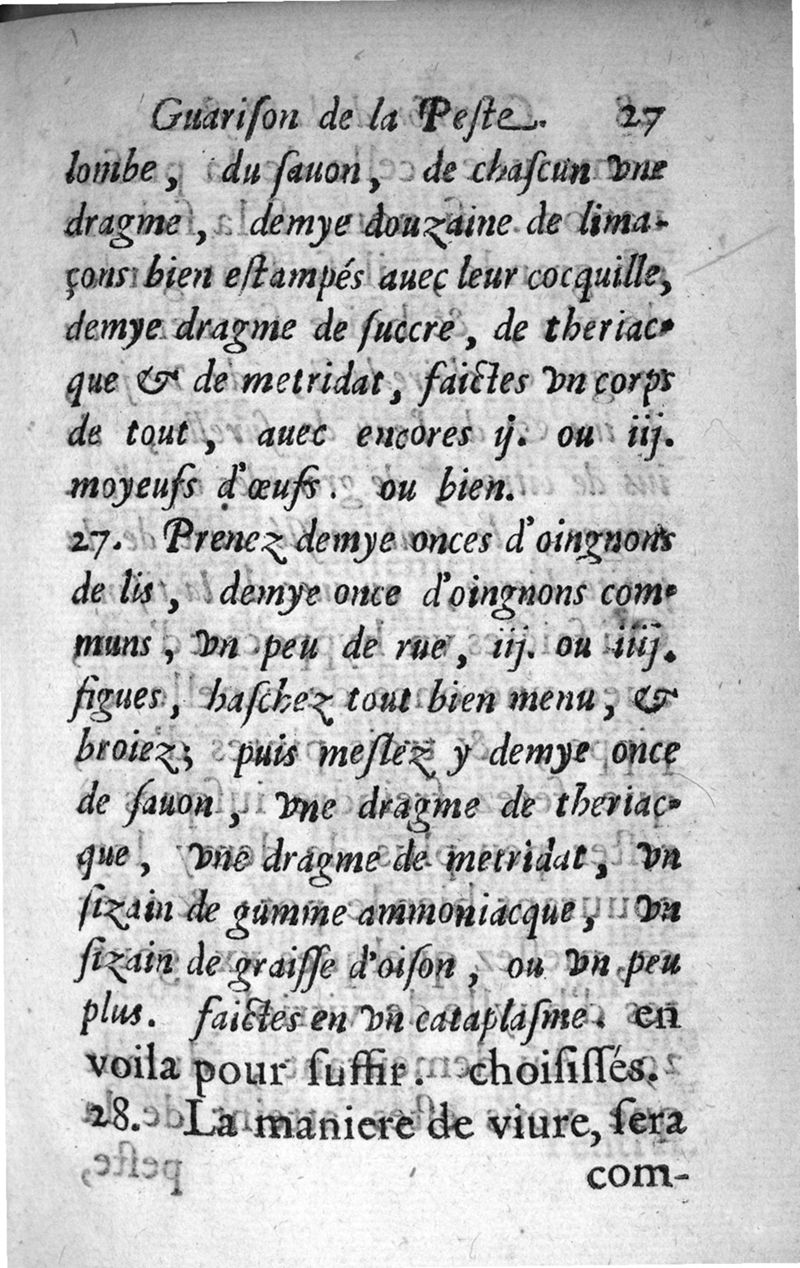 Guariſon de la Peſte. 27
lombe, du ſauon, de chaſcun vne
dragme, demye douzaine de lima-
çons bien eſtampés auec leur cocquille,
demye dragme de ſuccre, de theriac-
que & de metridat, faictes vn corps
de tout, auec encores ij. ou iij.
moyeufs d'œufs. ou bien.
27. Prenez demye onces d'oingnons
de lis, demye once d'oingnons com-
muns, vn peu de rue, iij. ou iiij.
figues, haſchez tout bien menu, &
broiez; puis meſlez y demye once
de ſauon, vne dragme de theriac-
que, vne dragme de metridat, vn
ſizain de gumme ammoniacque, vn
ſizain de graiſſe d'oiſon, ou vn peu
plus. faictes en vn cataplaſme. en
voila pour ſuffir. choiſiſſés.
28. La maniere de viure, ſera
com-